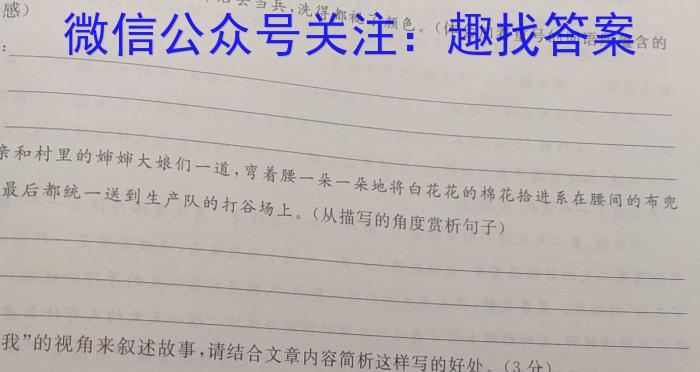 感)
去当兵,洗得都褪了颜色。(体
语 含的
微信公众号关注：趣找答案
:
亲和村里的婶婶大娘们一道,弯着腰一朵一朵地将白花花的棉花拾进系在腰间的布兜
最后都统一送到生产队的打谷场上。(从描写的角度赏析句子)
我”的视角来叙述故事,请结合文章内容简析这样写的好处。(3分)